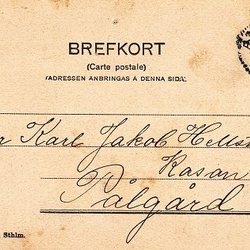 BREFKORT
(Carte postale)
(ADRESSEN ANBRINGAS Å DENNA SIDA)
Karl Jakob Hells
Kasan
Pålgård
Sthlm.